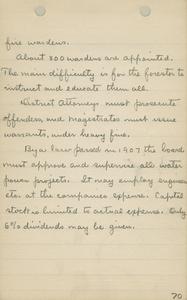 fire wardens.
About 800 wardens are appointed.
The main difficulty is for the forester to
instruct and educate them all.
District Attorneys must prosecute
offenders, and magistrates must issue
warrants, under heavy fine.
By a law passed in 1907 the board
must approve and supervise all water
power projects. It may employ engineers
etc. at the companies expense. Capital
stock is limited to actual expense. Only
6% dividends may be given.
70